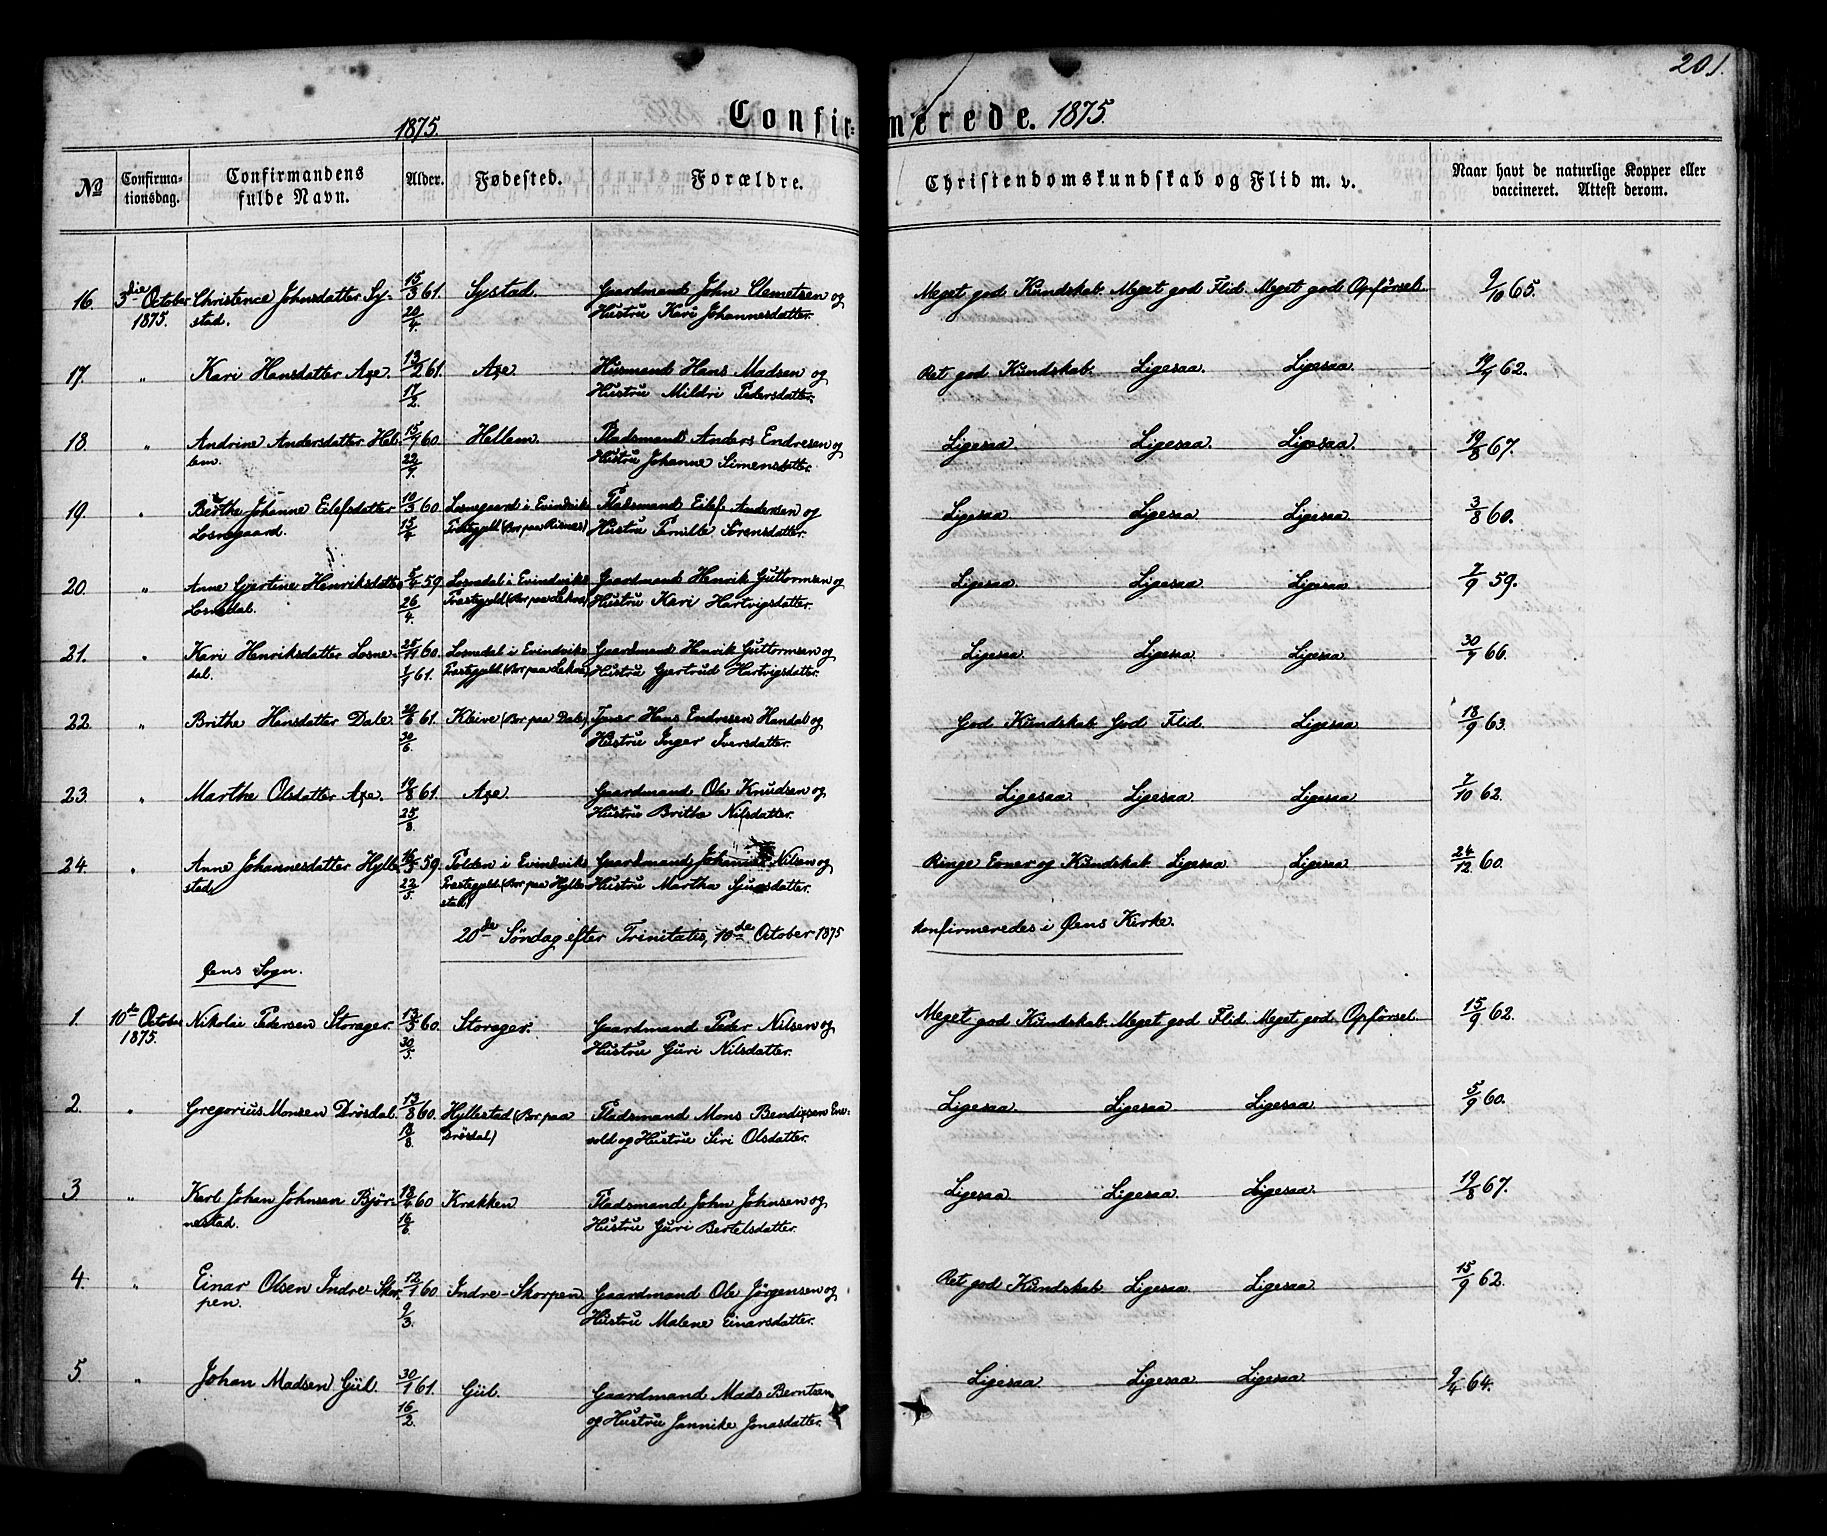 201.
1875. Confir- merede. 1875.
No Confirma- tionsdag. Confirmandens fulde Navn. Alder. Fødested. Forældre. Christendomskundskab og Flid m. v. Naar havt de naturlige Kopper eller vaccineret. Attest derom.
16. 3die October Christence Johnsdatter Sy- 15/3 61. Systad. Gaardmand John Clemetsen og Meget god Kundskab. Meget god Flid. Meget god Opførsel. 9/10 65.
1875. stad. 20/4. Hustru Kari Johannesdatter.
17. " Kari Hansdatter Aae. 13/2 61. Aae Husmand Hans Madsen og Ret god Kundskab. Ligesaa. Ligesaa. 19/9 62.
17/2. Hustru Mildri Pedersdatter.
18. " Andrine Andersdatter Hel- 15/9 60. Hellem. Pladsmand Anders Endresen og Ligesaa. Ligesaa. Ligesaa. 19/8 67.
lem. 22/9. Hustru Johanne Simensdatter.
19. " Berthe Johanne Eilefsdatter 10/3 60. Losnegaard i Evindvik Pladsmand Eilef Andersen og Ligesaa Ligesaa Ligesaa. 3/8 60.
Losnegaard. 15/4 Præstegjeld (Bor paa Risnes) Hustru Pernille Sørensdatter.
20. " Anne Gjertine Henriksdatter 5/4 59. Losnedal i Evindviks Gaardmand Henrik Guttormsen og Ligesaa. Ligesaa Ligesaa. 7/9 59.
Losnedal. 26/4. Præstegjeld (Bor paa Lekva) Hustru Kari Hartvigsdatter.
21. " Kari Henriksdatter Losne- 25/11 60. Losnedal i Evindviks Gaardmand Henrik Guttormsen og Ligesaa. Ligesaa Ligesaa. 30/9 66.
dal. 1/1 61. Præstegjeld (Bor paa Lekva) Hustru Gjertrud Hartvigsdatter.
22. " Brithe Hansdatter Dale. 20/6 61. Kleive (Bor paa Dale) Hans Endresen Handal og God Kundskab. God Flid. Ligesaa. 18/9 63.
30/6. Hustru Inger Iversdatter.
23. " Marthe Olsdatter Aae. 19/8 61. Aae. Gaardmand Ole Knudsen og Ligesaa. Ligesaa. Ligesaa 7/10 62.
25/8. Hustru Brithe Nilsdatter.
24. " Anne Johannesdatter Hylle- 16/3 59. Polden i Evindviks Gaardmand Johannes Nilsen og Ringe Evner og Kundskab. Ligesaa Ligesaa 24/12 60.
stad 22/5. Præstegjeld (Bor paa Hylle- Hustru Martha Sjursdatter.
stad)
20de Søndag efter Trinitatis, 10de October 1875 konfirmeredes i Øens Kirke.
Øens Sogn.
1. 10de October Nikolai Pedersen Storager. 13/3 60. Storager. Gaardmand Peder Nilsen og Meget god Kundskab. Meget god Flid. Meget god Opførsel. 15/9 62.
1875. 30/5. Hustru Guri Nilsdatter.
2. " Gregorius Monsen Drøsdal. 13/8 60. Hyllestad (Bor paa Pladsmand Mons Bendixen En- Ligesaa. Ligesaa. Ligesaa. 5/9 60.
18/8. Drøsdal) vold og Hustru Siri Olsdatter.
3 " Karl Johan Johnsen Bjør- 18/4 60 Krakken Pladsmand John Johnsen og Ligesaa Ligesaa. Ligesaa. 19/8 67.
nestad. 16/6. Hustru Guri Bertelsdatter.
4. " Einar Olsen Indre-Skor- 12/1 60 Indre-Skorpen Gaardmand Ole Jørgensen og Ret god Kundskab Ligesaa. Ligesaa. 15/9 62.
pen. 9/3. Hustru Malene Einarsdatter.
5. " Johan Madsen Gül. 30/1 61. Gül. Gaardmand Mads Berntsen Ligesaa. Ligesaa. Ligesaa 9/4 64.
16/2. og Hustru Jannike Jonasdatter.